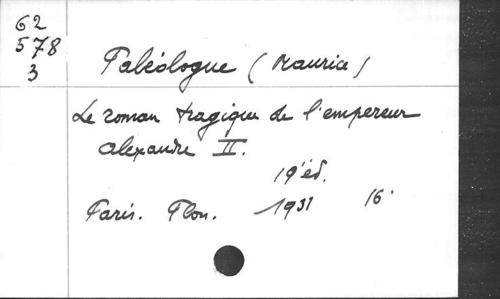 62
578
3
Paléologue (Maurice)
Le roman tragique de l'empereur
Alexandre II.
19'éd.
Paris. Plon. 1931 16°